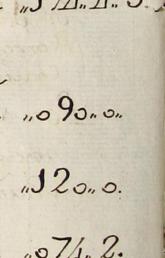 „090„0„
„120„0.
„074„2.